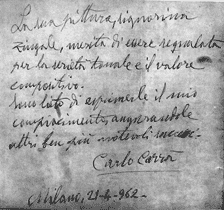 La sua pittura, signorina
Zingale, merita di essere segnalata
per la serietà tonale e il valore
compositivo.
Sono lieto di esprimerle il mio
compiacimento, augurandole
altri ben più notevoli
Carlo Carrà
Milano, 21-4-962-